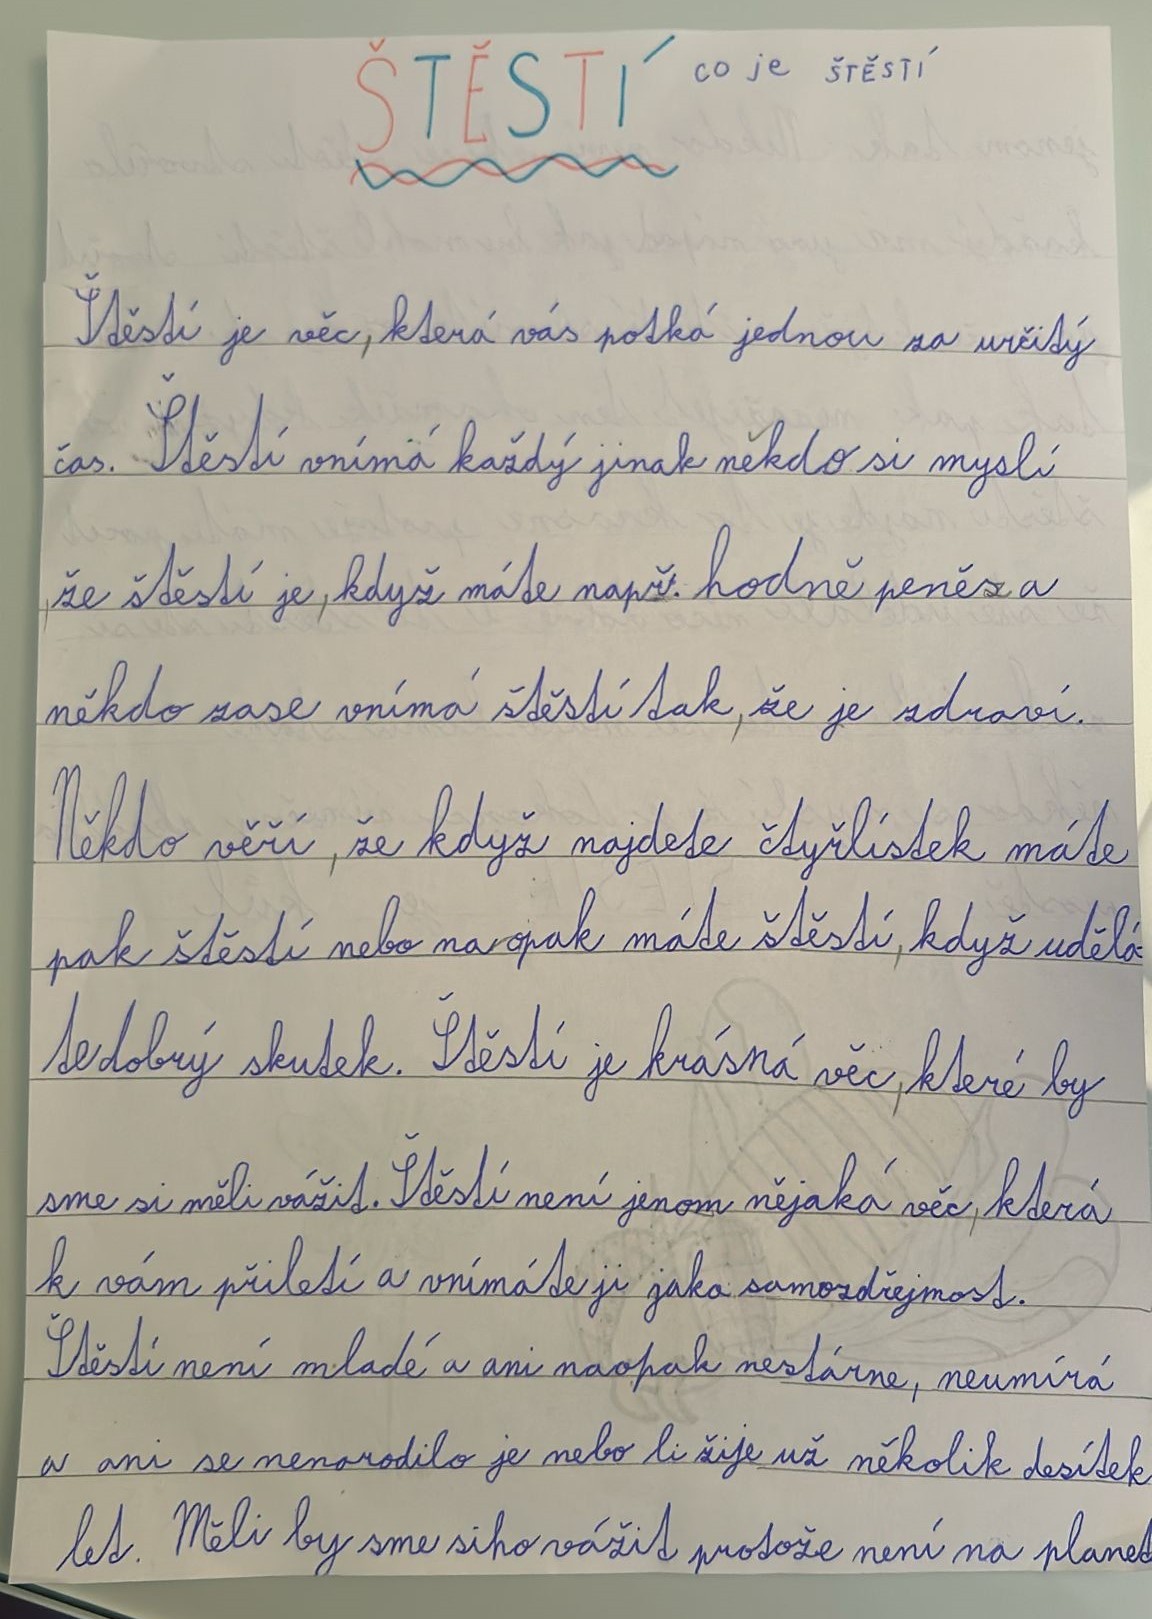 ŠTĚSTÍ co je ŠTĚSTÍ
Štěstí je věc, která vás potká jednou za určitý
čas. Štěstí vnímá každý jinak někdo si myslí
, že štěstí je, když máte např. hodně peněz a
někdo zase vnímá štěstí tak, že je zdraví.
Někdo věří, že když najdete čtyřlístek máte
pak štěstí nebo naopak máte štěstí, když udělá-
te dobrý skutek. Štěstí je krásná věc, které by
sme si měli vážit. Štěstí není jenom nějaká věc, která
k vám přiletí a vnímáte ji jako samozdřejmost.
Štěstí není mladé a ani naopak nestárne, neumírá
a ani se nenarodilo je nebo li žije už několik desítek
let. Měli by sme siho vážit protože není na planet